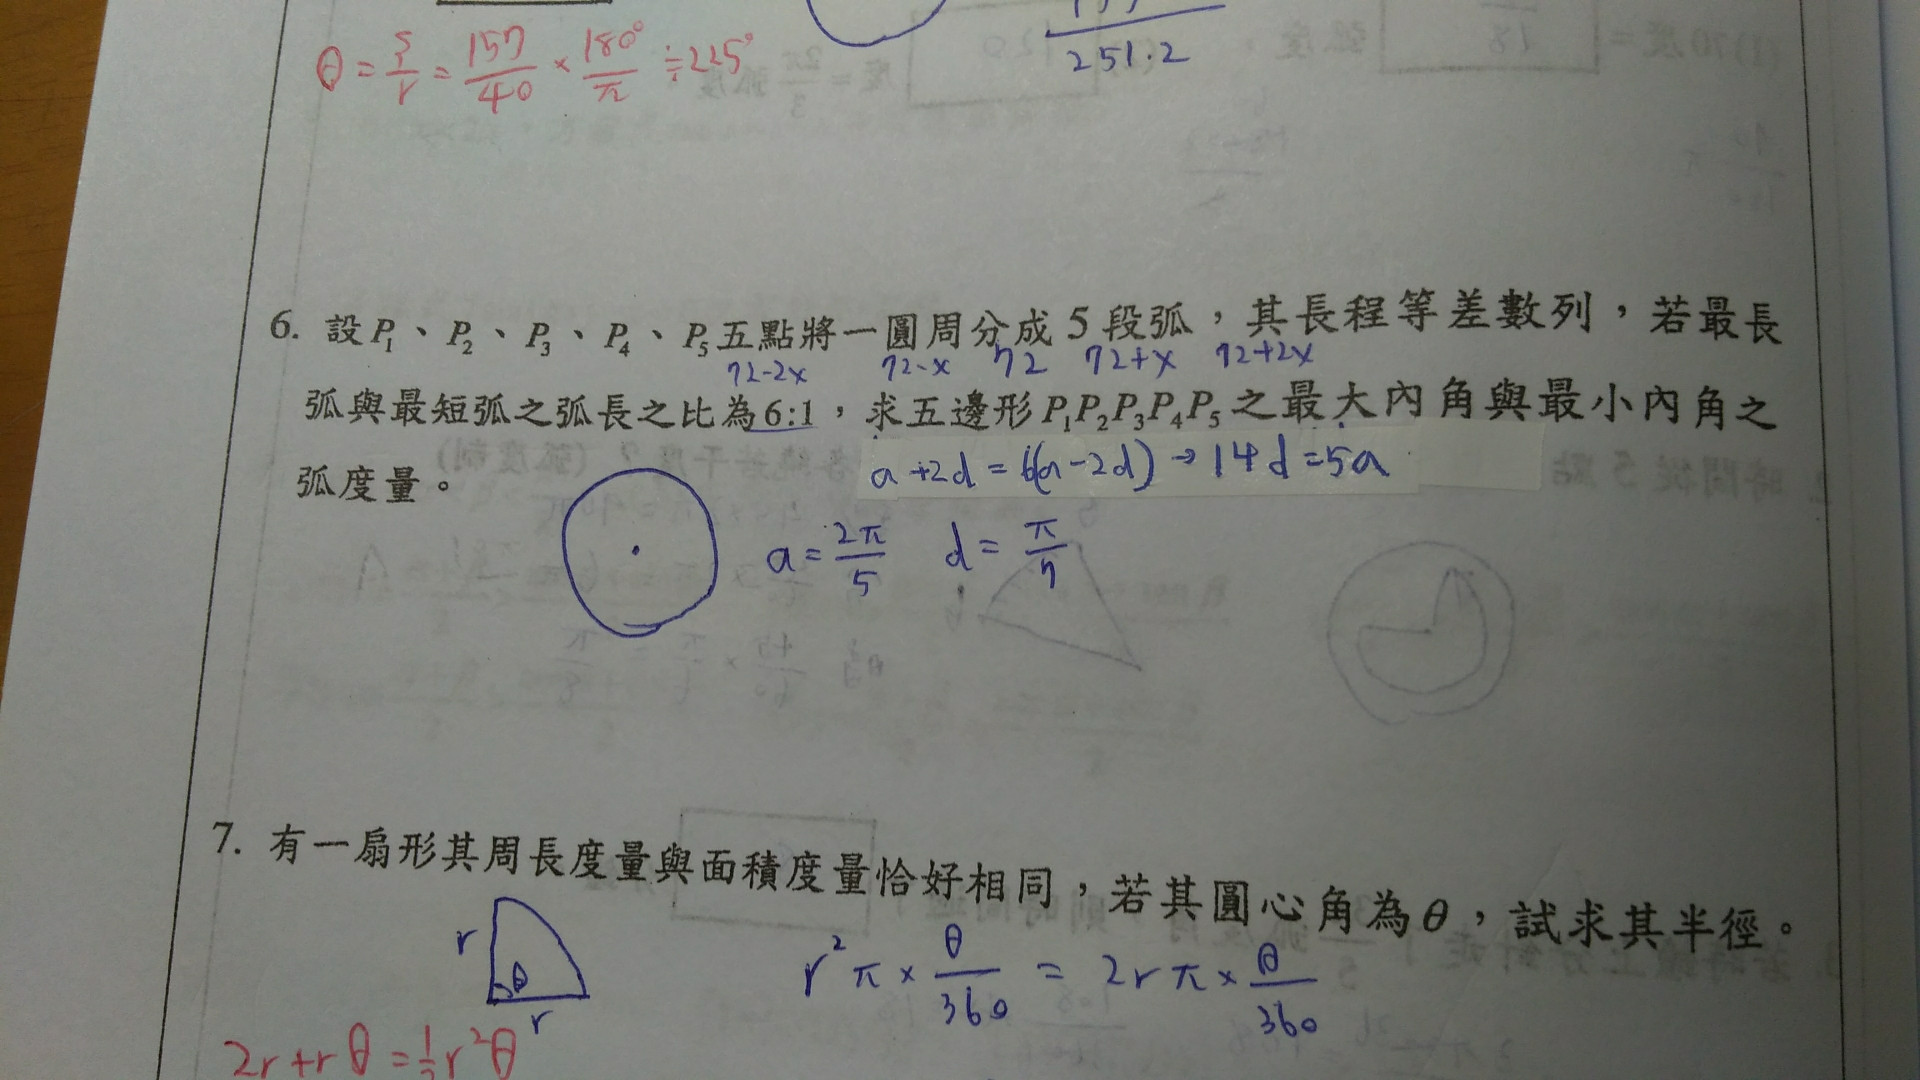 θ = S/r = 157/40 × 180°/π ≑ 225°
251.2
6. 設P₁、P₂、P₃、P₄、P₅五點將一圓周分成5段弧，其長程等差數列，若最長
72-2x 72-x 72 72+x 72+2x
弧與最短弧之弧長之比為6:1，求五邊形P₁P₂P₃P₄P₅之最大內角與最小內角之
弧度量。
a+2d=6(a-2d)→14d=5a
a=2π/5 d=π/7
7. 有一扇形其周長度量與面積度量恰好相同，若其圓心角為θ，試求其半徑。
r θ r
r²π×θ/360 = 2rπ×θ/360
2r+rθ=½r²θ